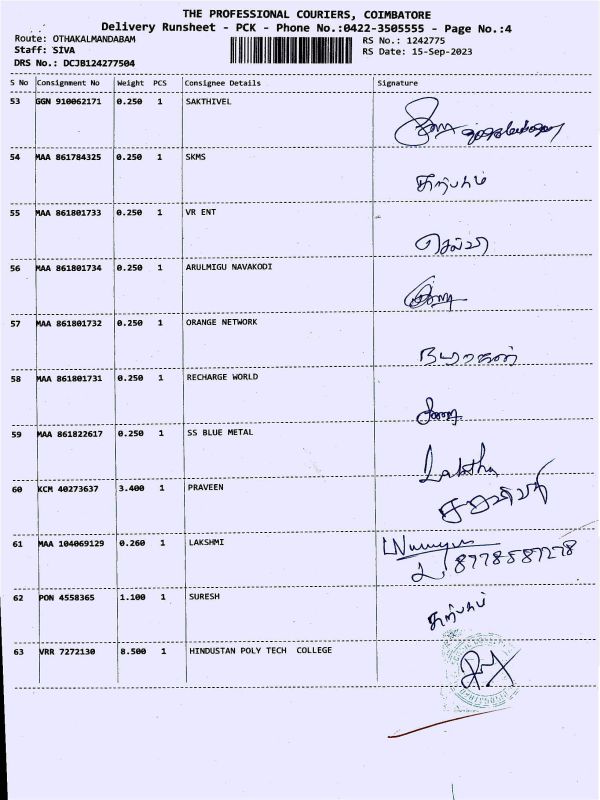 THE PROFESSIONAL COURIERS, COIMBATORE
Delivery Runsheet - PCK - Phone No.:0422-3505555 - Page No.:4
Route: OTHAKALMANDABAM RS No.: 1242775
Staff: SIVA RS Date: 15-Sep-2023
DRS No.: DCJB124277504
S No Consignment No Weight PCS Consignee Details Signature
53 GGN 910062171 0.250 1 SAKTHIVEL
54 MAA 861784325 0.250 1 SKMS
55 MAA 861801733 0.250 1 VR ENT
56 MAA 861801734 0.250 1 ARULMIGU NAVAKODI
57 MAA 861801732 0.250 1 ORANGE NETWORK
58 MAA 861801731 0.250 1 RECHARGE WORLD
59 MAA 861822617 0.250 1 SS BLUE METAL
60 KCM 40273637 3.400 1 PRAVEEN
61 MAA 104069129 0.260 1 LAKSHMI
8778587278
62 PON 4558365 1.100 1 SURESH
63 VRR 7272130 8.500 1 HINDUSTAN POLY TECH COLLEGE